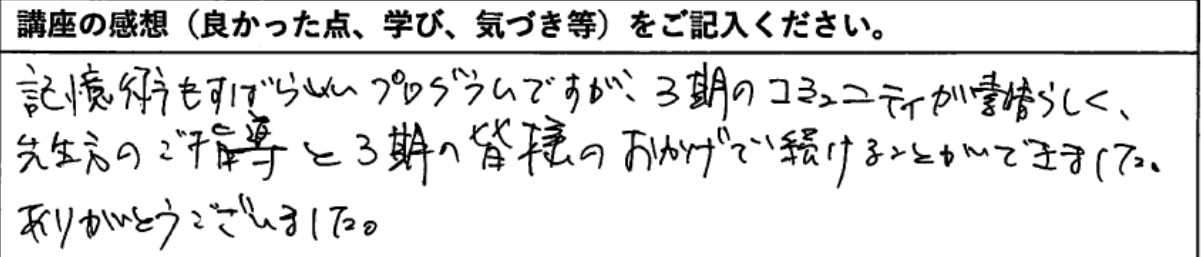 講座の感想（良かった点、学び、気づき等）をご記入ください。
記憶術もすばらしいプログラムですが、3期のコミュニティが素晴らしく、
先生方のご指導と3期の皆様のおかげで続けることができました。
ありがとうございました。